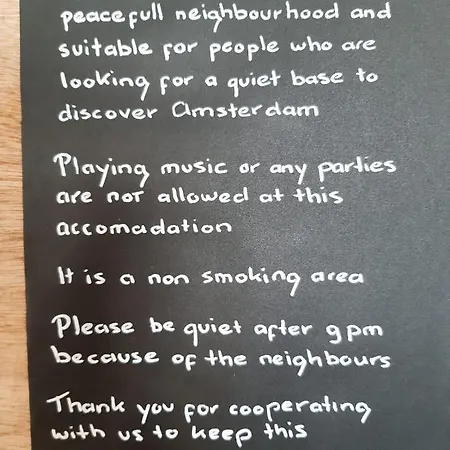 peacefull neighbourhood and
suitable for people who are
looking for a quiet base to
discover Amsterdam
Playing music or any parties
are not allowed at this
accomadation
It is a non smoking area
Please be quiet after 9 pm
because of the neighbours
Thank you for cooperating
with us to keep this